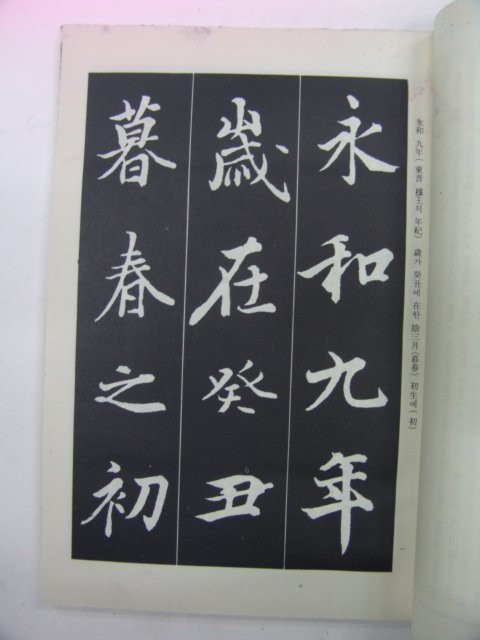 永和九年
歲在癸丑
暮春之初
永和 九年(東晋 穆王의 年紀) 歲가 癸丑에 在한 陰三月(暮春) 初生에(初)